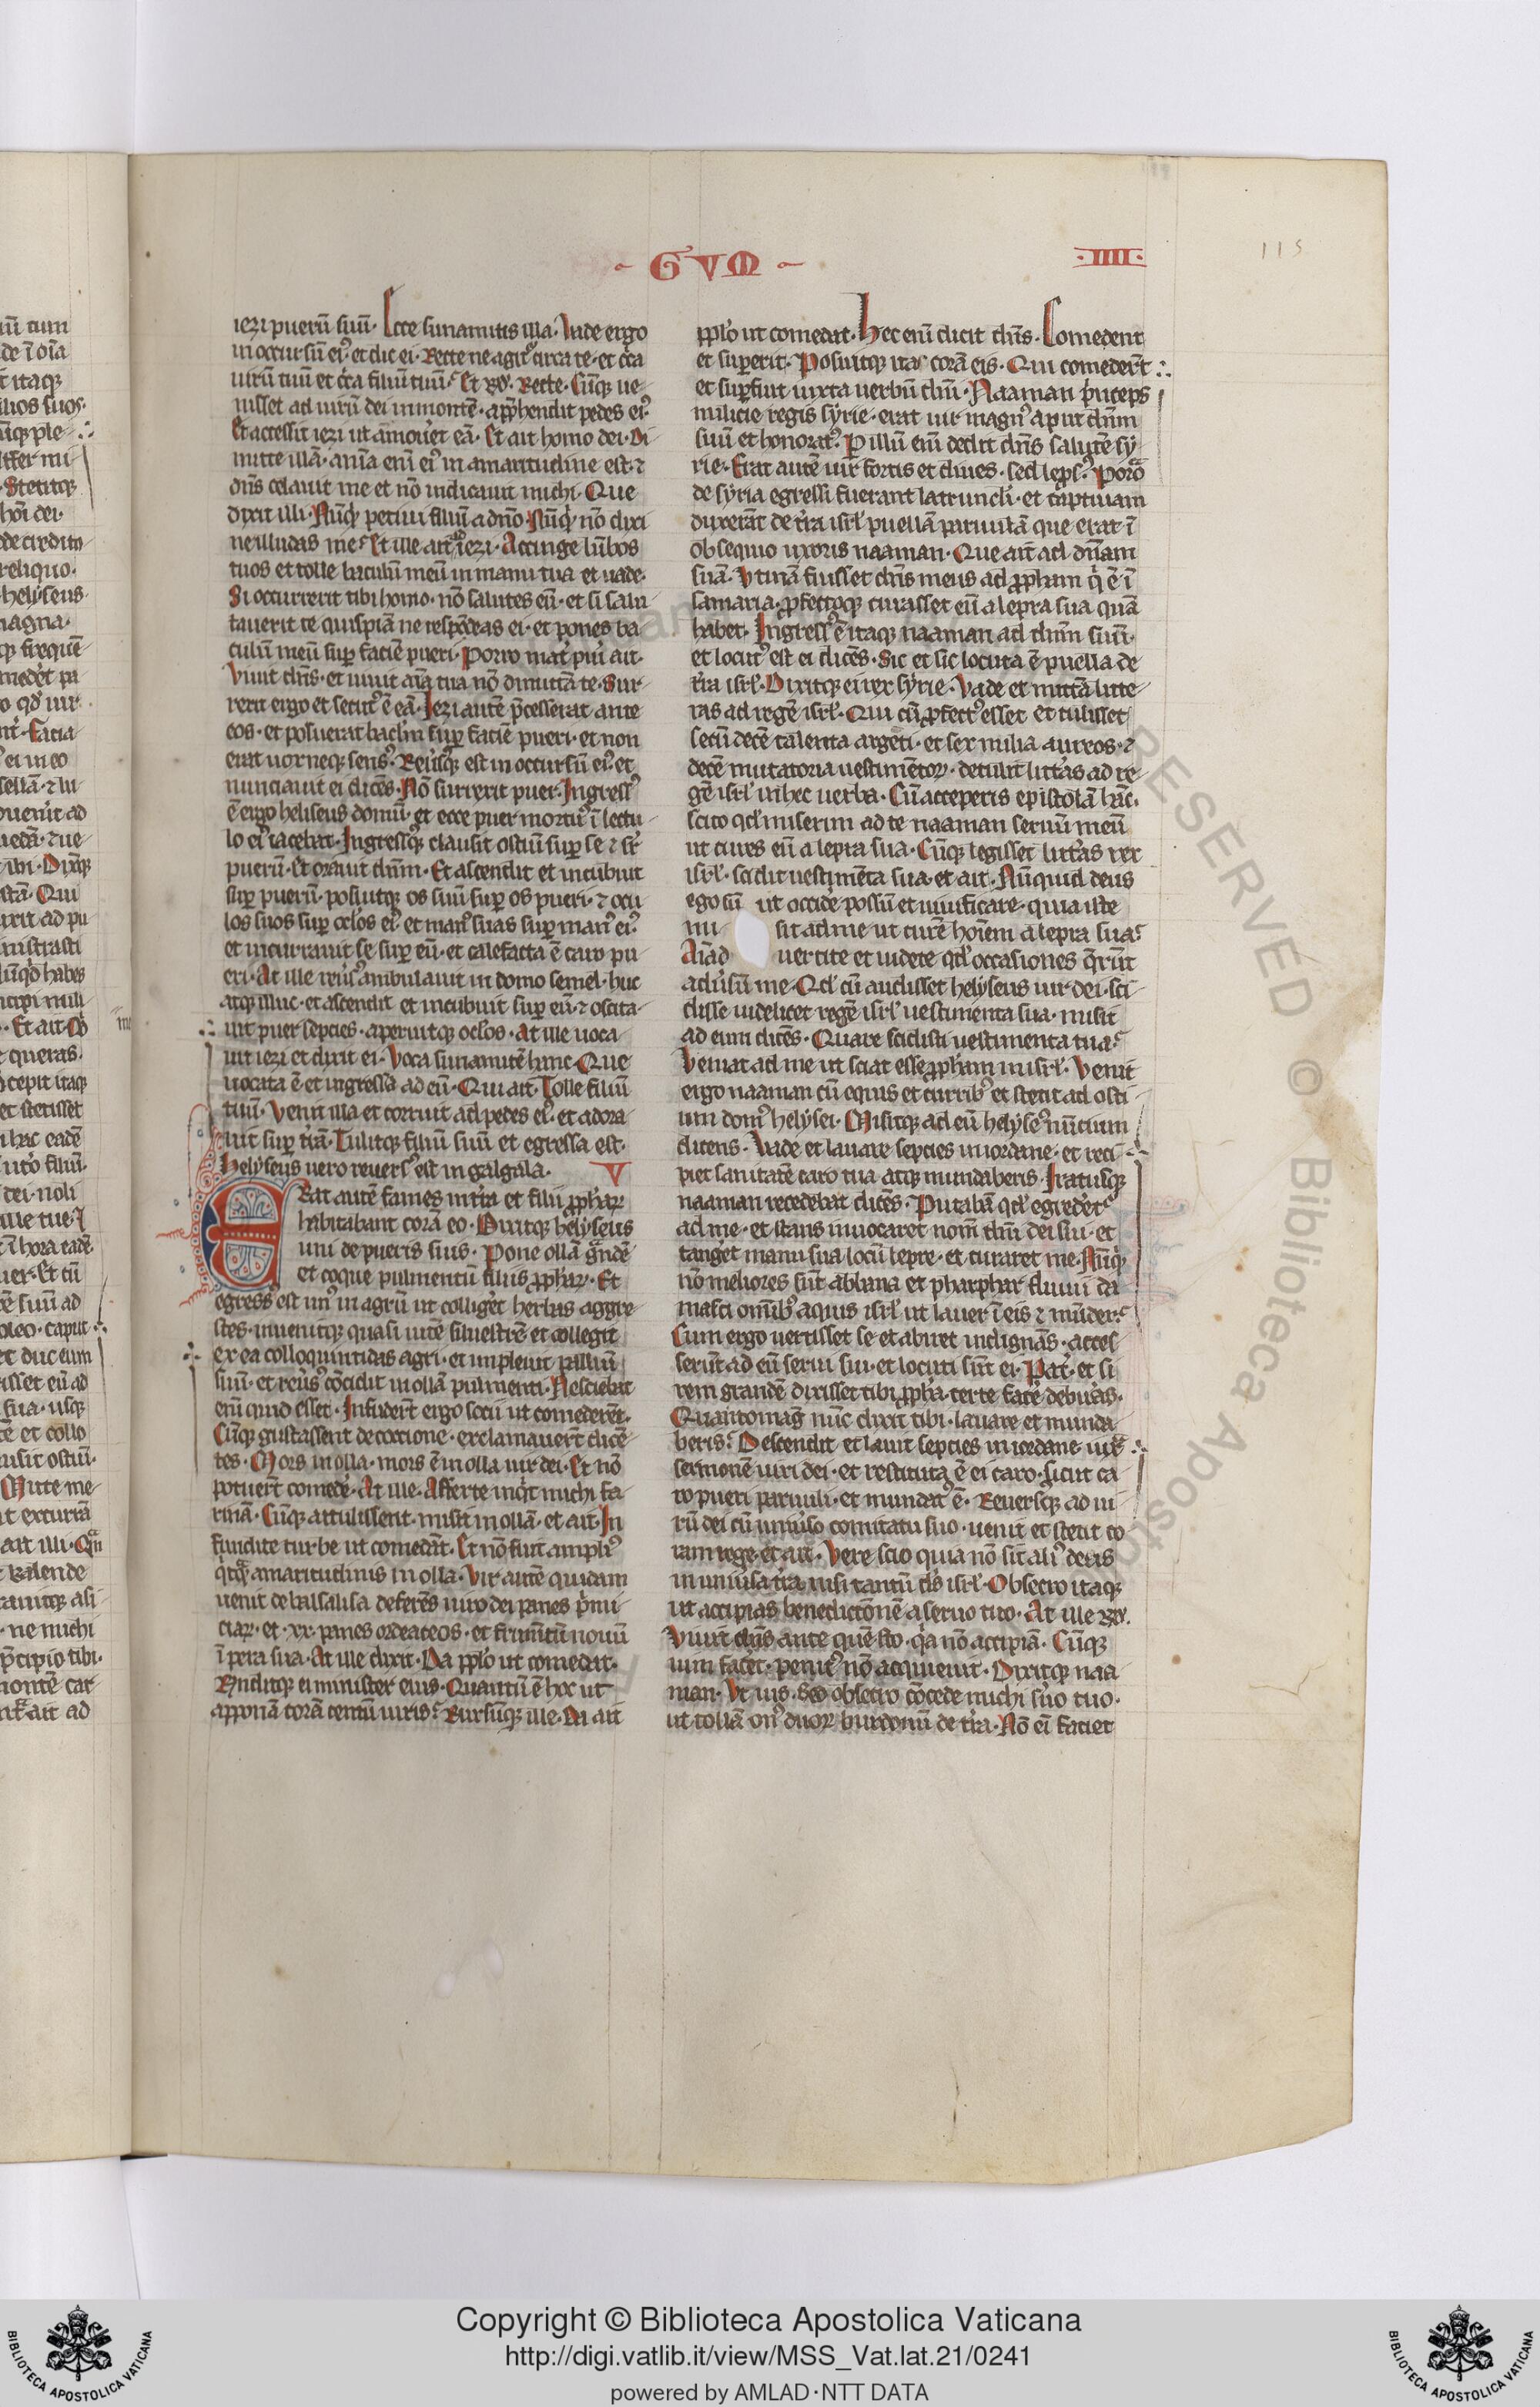 · G V M ·
· IIII ·
115
iezi puerū suū· Ecce sunamitis illa· Vade ergo
in occursū ei⁹· et dic ei· Recte ne agit᷑ circa te· et c̄ca
uirū tuū et c̄ca filiū tuū? Et rn̄· Recte· Cūq; ue-
nisset ad uirū dei in montē· app̄hendit pedes ei⁹·
Et accessit iezi ut āmou̓et eā· Et ait homo dei· Di
mitte illā· anīa enī ei⁹ in amaritudine est· ⁊
dn̄s celauit me et nō indicauit michi· Que
dixit illi· Nūq̇d petiui filiū a dn̄o· Nūq̇d nō dixi
ne illudas me? Et ille ait iezi· Accinge lūbos
tuos et tolle baculū meū in manu tua et uade·
Si occurrerit tibi homo· nō salutes eū· et si salu
tauerit te quispiā ne respōdeas ei· et pones ba-
culū meū suꝑ faciē pueri· Porro mat̓ pu̓i ait·
Viuit dn̄s· et uiuit aīa tua nō dimittā te· Sur-
rexit ergo et secut⁹ ē eā· Iezi autē p̄cesserat ante
eos· et posuerat baclm̄ suꝑ faciē pueri· et non
erat uox neq; sens⁹· Reu̓sq; est in occursū ei⁹· et
nunciauit ei dicēs· Nō surrexit puer· Ingress⁹
ē ergo heliseus domū· et ecce puer mortu⁹ ī lectu-
lo ei⁹ iacebat· Ingressq; clausit ostiū suꝑ se ⁊ sr̄
puerū· Et orauit dn̄m· Et ascendit et incubuit
suꝑ puerū· posuitq; os suū suꝑ os pueri· ⁊ ocu
los suos suꝑ oclos ei⁹· et man⁹ suas suꝑ man⁹ ei⁹·
et incuruauit se suꝑ eū· et calefacta ē caro pu
eri· At ille reu̓s⁹ ambulauit in domo semel· huc
atq; illuc· et ascendit et incubuit suꝑ eū· ⁊ oscita-
uit puer septies· aperuitq; oclos· At ille uoca
uit iezi et dixit ei· Voca sunamitē hanc· Que
uocata ē et ingressa ad eū· Qui ait· Tolle filiū
tuū· Venit illa et corruit ad pedes ei⁹· et adora
uit suꝑ t̓rā· Tulitq; filiū suū et egressa est·
Helyseus uero reuers⁹ est in galgala· V
Erat autē fames in t̓ra et filii ꝓphaꝝ
habitabant corā eo· Dixitq; helyseus
uni de pueris suis· Pone ollā gͣndē
et coque pulmentū filiis ꝓphaꝝ· Et
egress⁹ est un⁹ in agrū ut collig̓et herbas aggre-
stes· inuenitq; quasi uitē siluestrē et collegit
ex ea colloquintidas agri· et impleuit palliū
suū· et reu̓s⁹ cōcidit in ollā pulmenti· Nesciebat
enī quid esset· Infuder̄t ergo sociis ut comederēt·
Cūq; gustassent de coctione· exclamauer̄t dicē
tes· Mors in olla· mors ē in olla uir dei· Et nō
potuer̄t comede̓· At ille· Afferte inq̇t michi fa-
rinā· Cūq; attulissent· misit in ollā· et ait· In
fundite turbe ut comedāt· Et nō fuit ampli⁹
q̇cq̄ amaritudinis in olla· Vir autē quidam
uenit de balsalisa deferēs uiro dei panes p̓mi-
ciaꝝ· et ·xx· panes ordeaceos· et frumtū nouū
ī pera sua· At ille dixit· Da pplo ut comedat·
Rn̄ditq; ei minister eius· Quantū ē hoc ut
apponā corā centū uiris? Rursūq; ille· Da ait
pplo ut comedat· Hec enī dicit dn̄s· Comedent
et suꝑerit· Posuitq; itaq; corā eis· Qui comeder̄t
et suꝑfuit iuxta uerbū dn̄i· Naaman p̓nceps
milicie regis syrie· erat uir magn⁹ aput dn̄m
suū et honorat⁹· P illū enī dedit dn̄s salutē sy
rie· Erat autē uir fortis et diues· sed lepros⁹· Porro
de syria egressi fuerant latrunculi· et captiuam
duxerāt de t̓ra isrl̄ puellā paruulā que erat ī
obsequio uxoris naaman· Que ait ad dn̄am
suā· Vtinā fuisset dn̄s meus ad ꝓpham q̇ ē ī
samaria· ꝓfectoq; curasset eū a lepra sua quā
habet· Ingress⁹ ē itaq; naaman ad dn̄m suū·
et locut⁹ est ei dicēs· Sic et sic locuta ē puella de
t̓ra isrl̄· Dixitq; ei rex syrie· Vade et mittā litte-
ras ad regē isrl̄· Qui cū ꝓfect⁹ esset et tulisset
secū decē talenta argēti· et sex milia aureos· ⁊
decē mutatoria uestimētoꝝ· detulit litt̓as ad re-
gē isrl̄ in hec uerba· Cū acceperis epistolā hāc·
scito qd̄ miserim ad te naaman seruū meū
ut cures eū a lepra sua· Cūq; legisset litt̓as rex
isrl̄· scidit uestimēta sua· et ait· Nūquid deus
ego sū ut occide̓ possū et uiuificare· quia iste
mi- sit ad me ut curē hoīem a lepra sua?
Aīad uertite et uidete qd̄ occasiones q̄rūt
adu̓sū me· Qd̄ cū audisset helyseus uir dei· sci
disse uidelicet regē isrl̄ uestimenta sua· misit
ad eum dicēs· Quare scidisti uestimenta tua?
Veniat ad me ut sciat esse ꝓpham in isrl̄· Venit
ergo naaman cū equis et currib⁹ et stetit ad osti-
um dom⁹ helysei· Misitq; ad eū helyse⁹ nūtium
dicens· Vade et lauare septies in iordane· et reci-
piet sanitatē caro tua atq; mundaberis· Iratusq;
naaman recedebat dicēs· Putabā qd̄ egrederet᷑
ad me· et stans inuocaret nom̄ dn̄i dei sui· et
tang̓et manu sua locū lepre· et curaret me· Nūq̇d
nō meliores sūt abbana et pharphar fluuii da
masci omib⁹ aquis isrl̄ ut lauer ī eis ⁊ mūder?
Cum ergo uertisset se et abiret indignās· acces-
serūt ad eū serui sui· et locuti sūt ei· Pat̓· et si
rem grandē dixisset tibi ꝓpha· certe face̓ debu̓as·
Quantomag̓ nūc dixit tibi· lauare et munda
beris? Descendit et lauit septies in iordane iux̄
sermonē uiri dei· et restituta ē ei caro· sicut ca
ro pueri paruuli· et mundat⁹ ē· Reuersq; ad ui-
rū dei cū uniu̓so comitatu suo· uenit et stetit co
ram rege· et ait· Vere scio quia nō sit ali⁹ deus
in uniu̓sa t̓ra nisi tantū ds̄ isrl̄· Obsecro itaq;
ut accipias benedictionē a seruo tuo· At ille rn̄·
Viuit dn̄s ante quē sto· qa nō accipiā· Cūq;
uim fac̓et· penit⁹ nō acquieuit· Dixitq; naa
man· Vt uis· Sed obsecro cōcede michi s̓uo tuo·
ut tollā on⁹ duoꝝ burdonū de t̓ra· Nō eī faciet
Copyright © Biblioteca Apostolica Vaticana
http://digi.vatlib.it/view/MSS_Vat.lat.21/0241
powered by AMLAD·NTT DATA
BIBLIOTECA APOSTOLICA VATICANA
BIBLIOTECA APOSTOLICA VATICANA